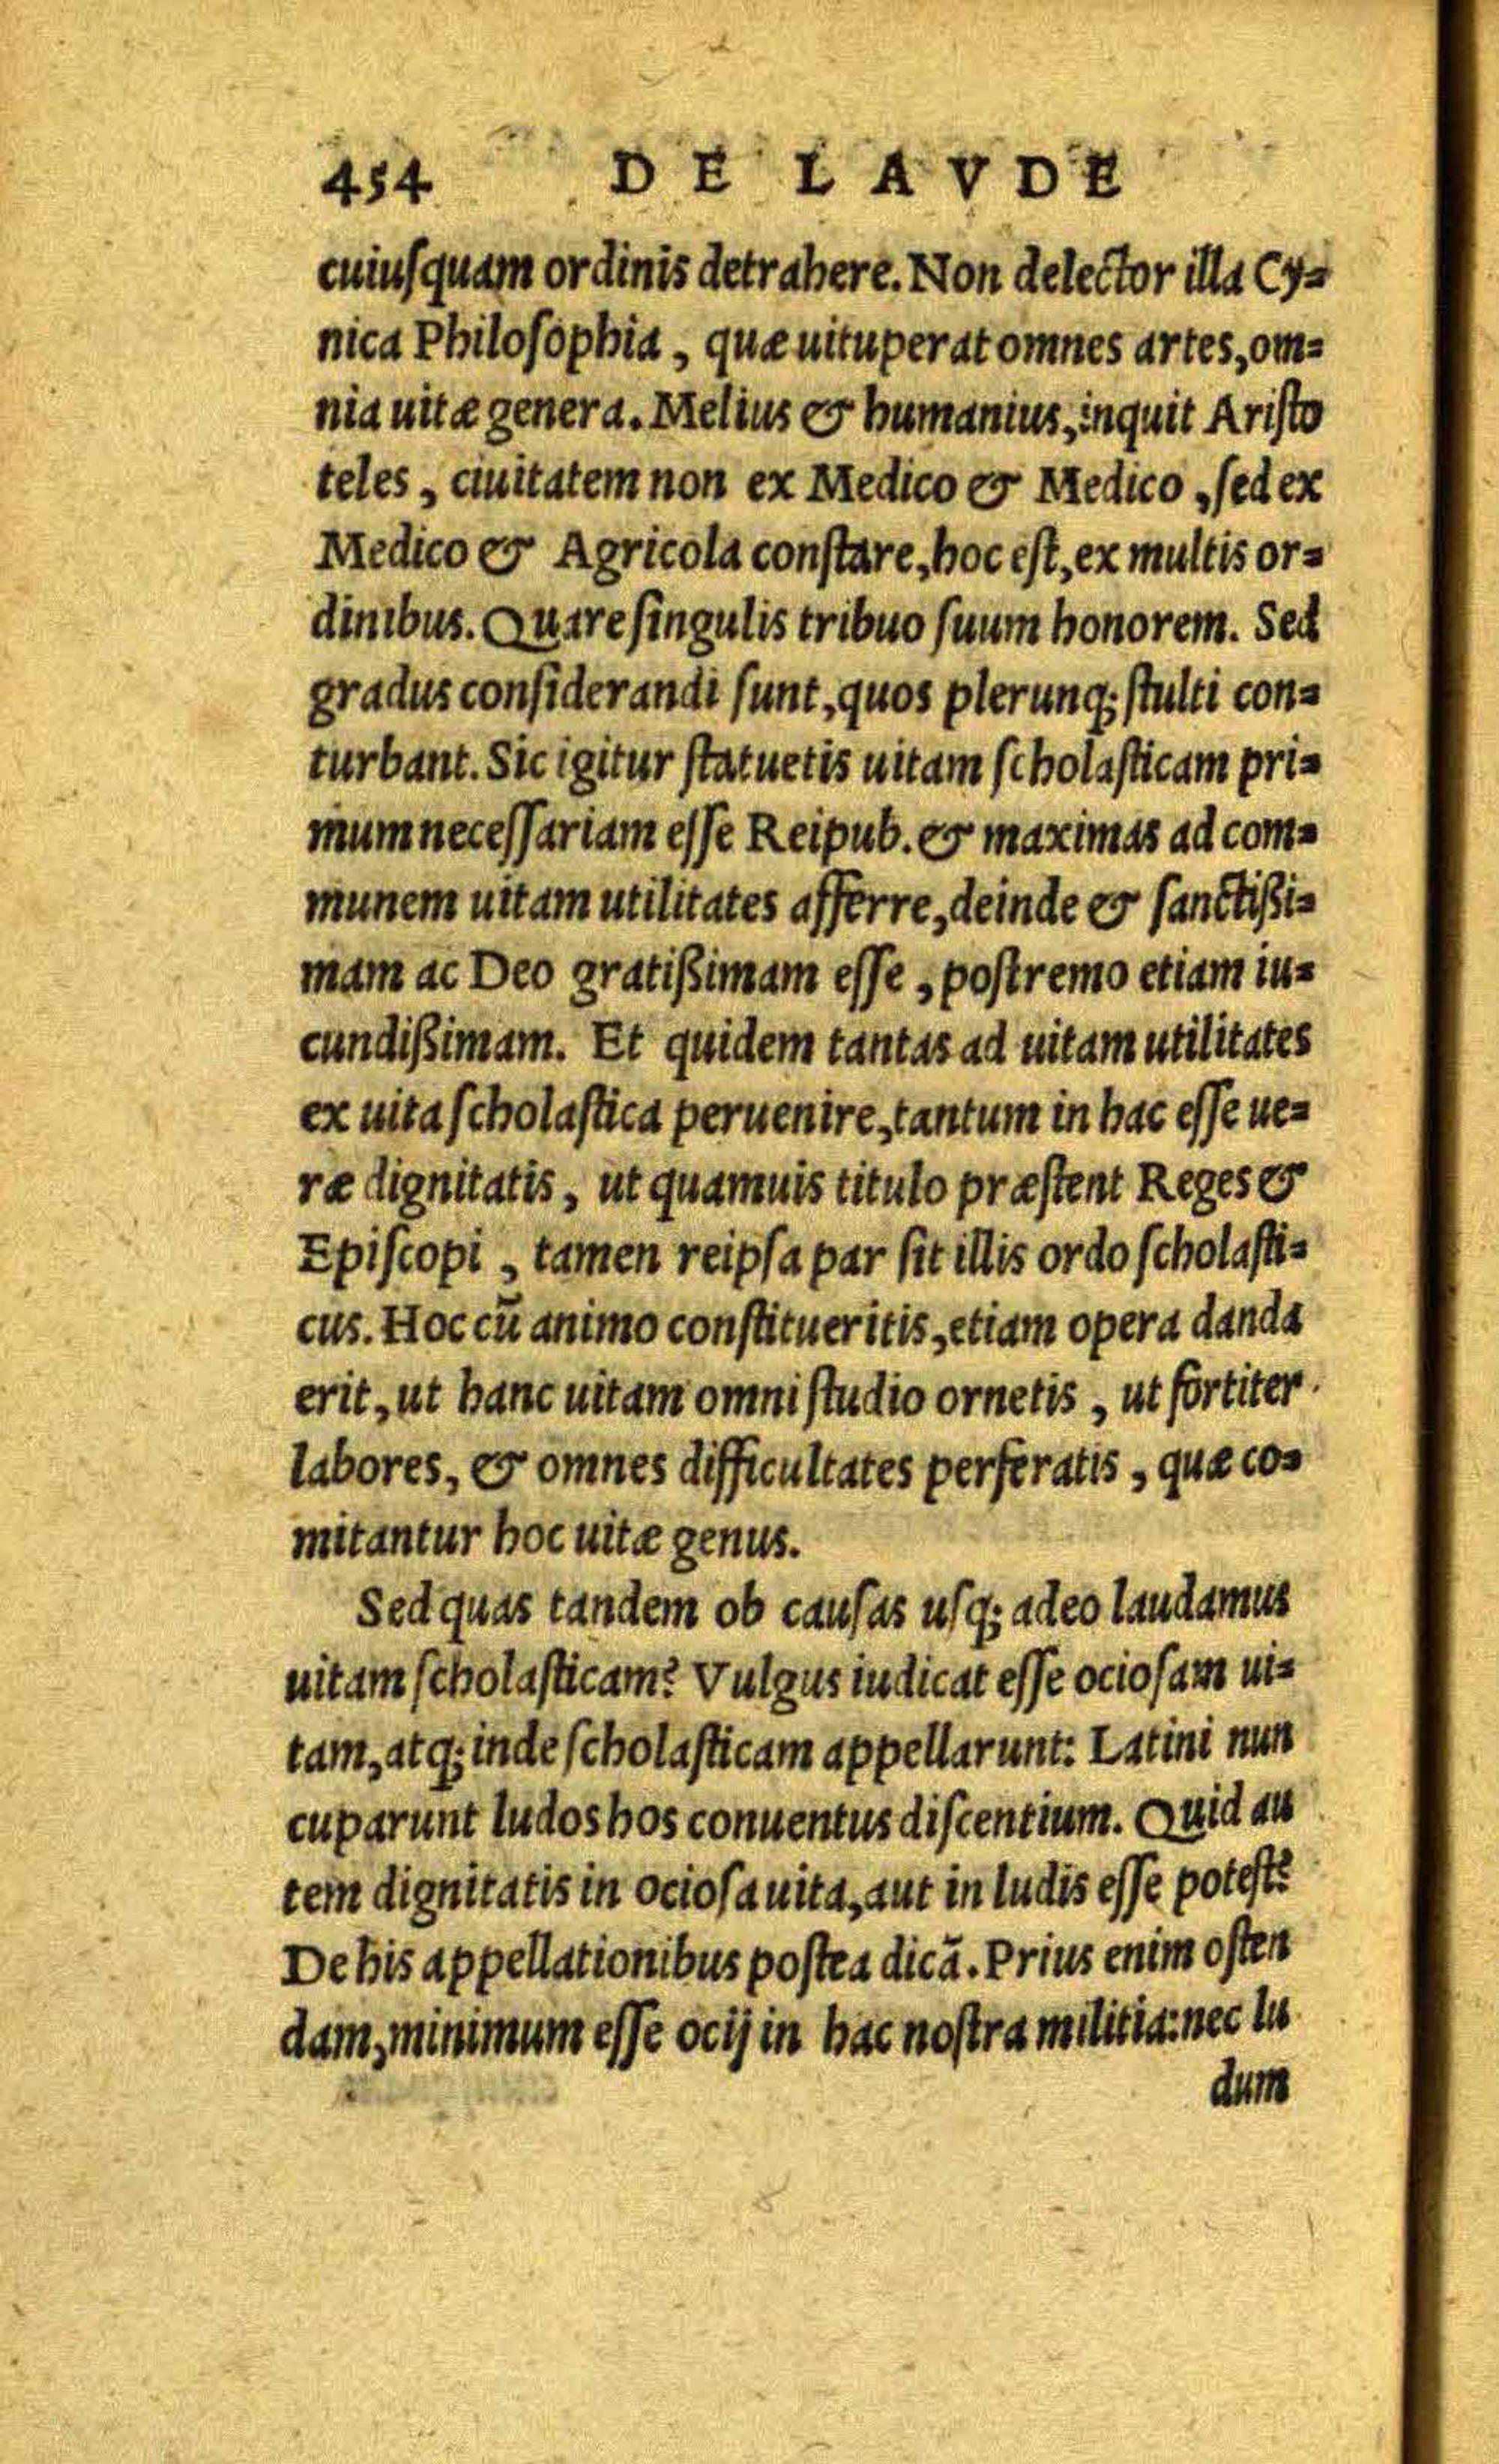 454 DE LAVDE
cuiuſquam ordinis detrahere. Non delector illa Cy=
nica Philoſophia, quæ uituperat omnes artes, om=
nia uitæ genera. Melius & humanius, inquit Ariſto
teles, ciuitatem non ex Medico & Medico, ſed ex
Medico & Agricola conſtare, hoc eſt, ex multis or=
dinibus. Quare ſingulis tribuo ſuum honorem. Sed
gradus conſiderandi ſunt, quos plerunq; ſtulti con=
turbant. Sic igitur ſtatuetis uitam ſcholaſticam pri=
mum neceſſariam eſſe Reipub. & maximas ad com=
munem uitam utilitates afferre, deinde & ſanctißi=
mam ac Deo gratißimam eſſe, poſtremo etiam iu=
cundißimam. Et quidem tantas ad uitam utilitates
ex uita ſcholaſtica peruenire, tantum in hac eſſe ue=
ræ dignitatis, ut quamuis titulo præſtent Reges &
Epiſcopi, tamen reipſa par ſit illis ordo ſcholaſti=
cus. Hoc cū animo conſtitueritis, etiam opera danda
erit, ut hanc uitam omni ſtudio ornetis, ut fortiter
labores, & omnes difficultates perferatis, quæ co=
mitantur hoc uitæ genus.
Sed quas tandem ob cauſas uſq; adeo laudamus
uitam ſcholaſticam? Vulgus iudicat eſſe ocioſam ui=
tam, atq; inde ſcholaſticam appellarunt: Latini nun
cuparunt ludos hos conuentus diſcentium. Quid au
tem dignitatis in ocioſa uita, aut in ludis eſſe poteſt?
De his appellationibus poſtea dicā. Prius enim oſten
dam, minimum eſſe ocij in hac noſtra militia: nec lu
dum